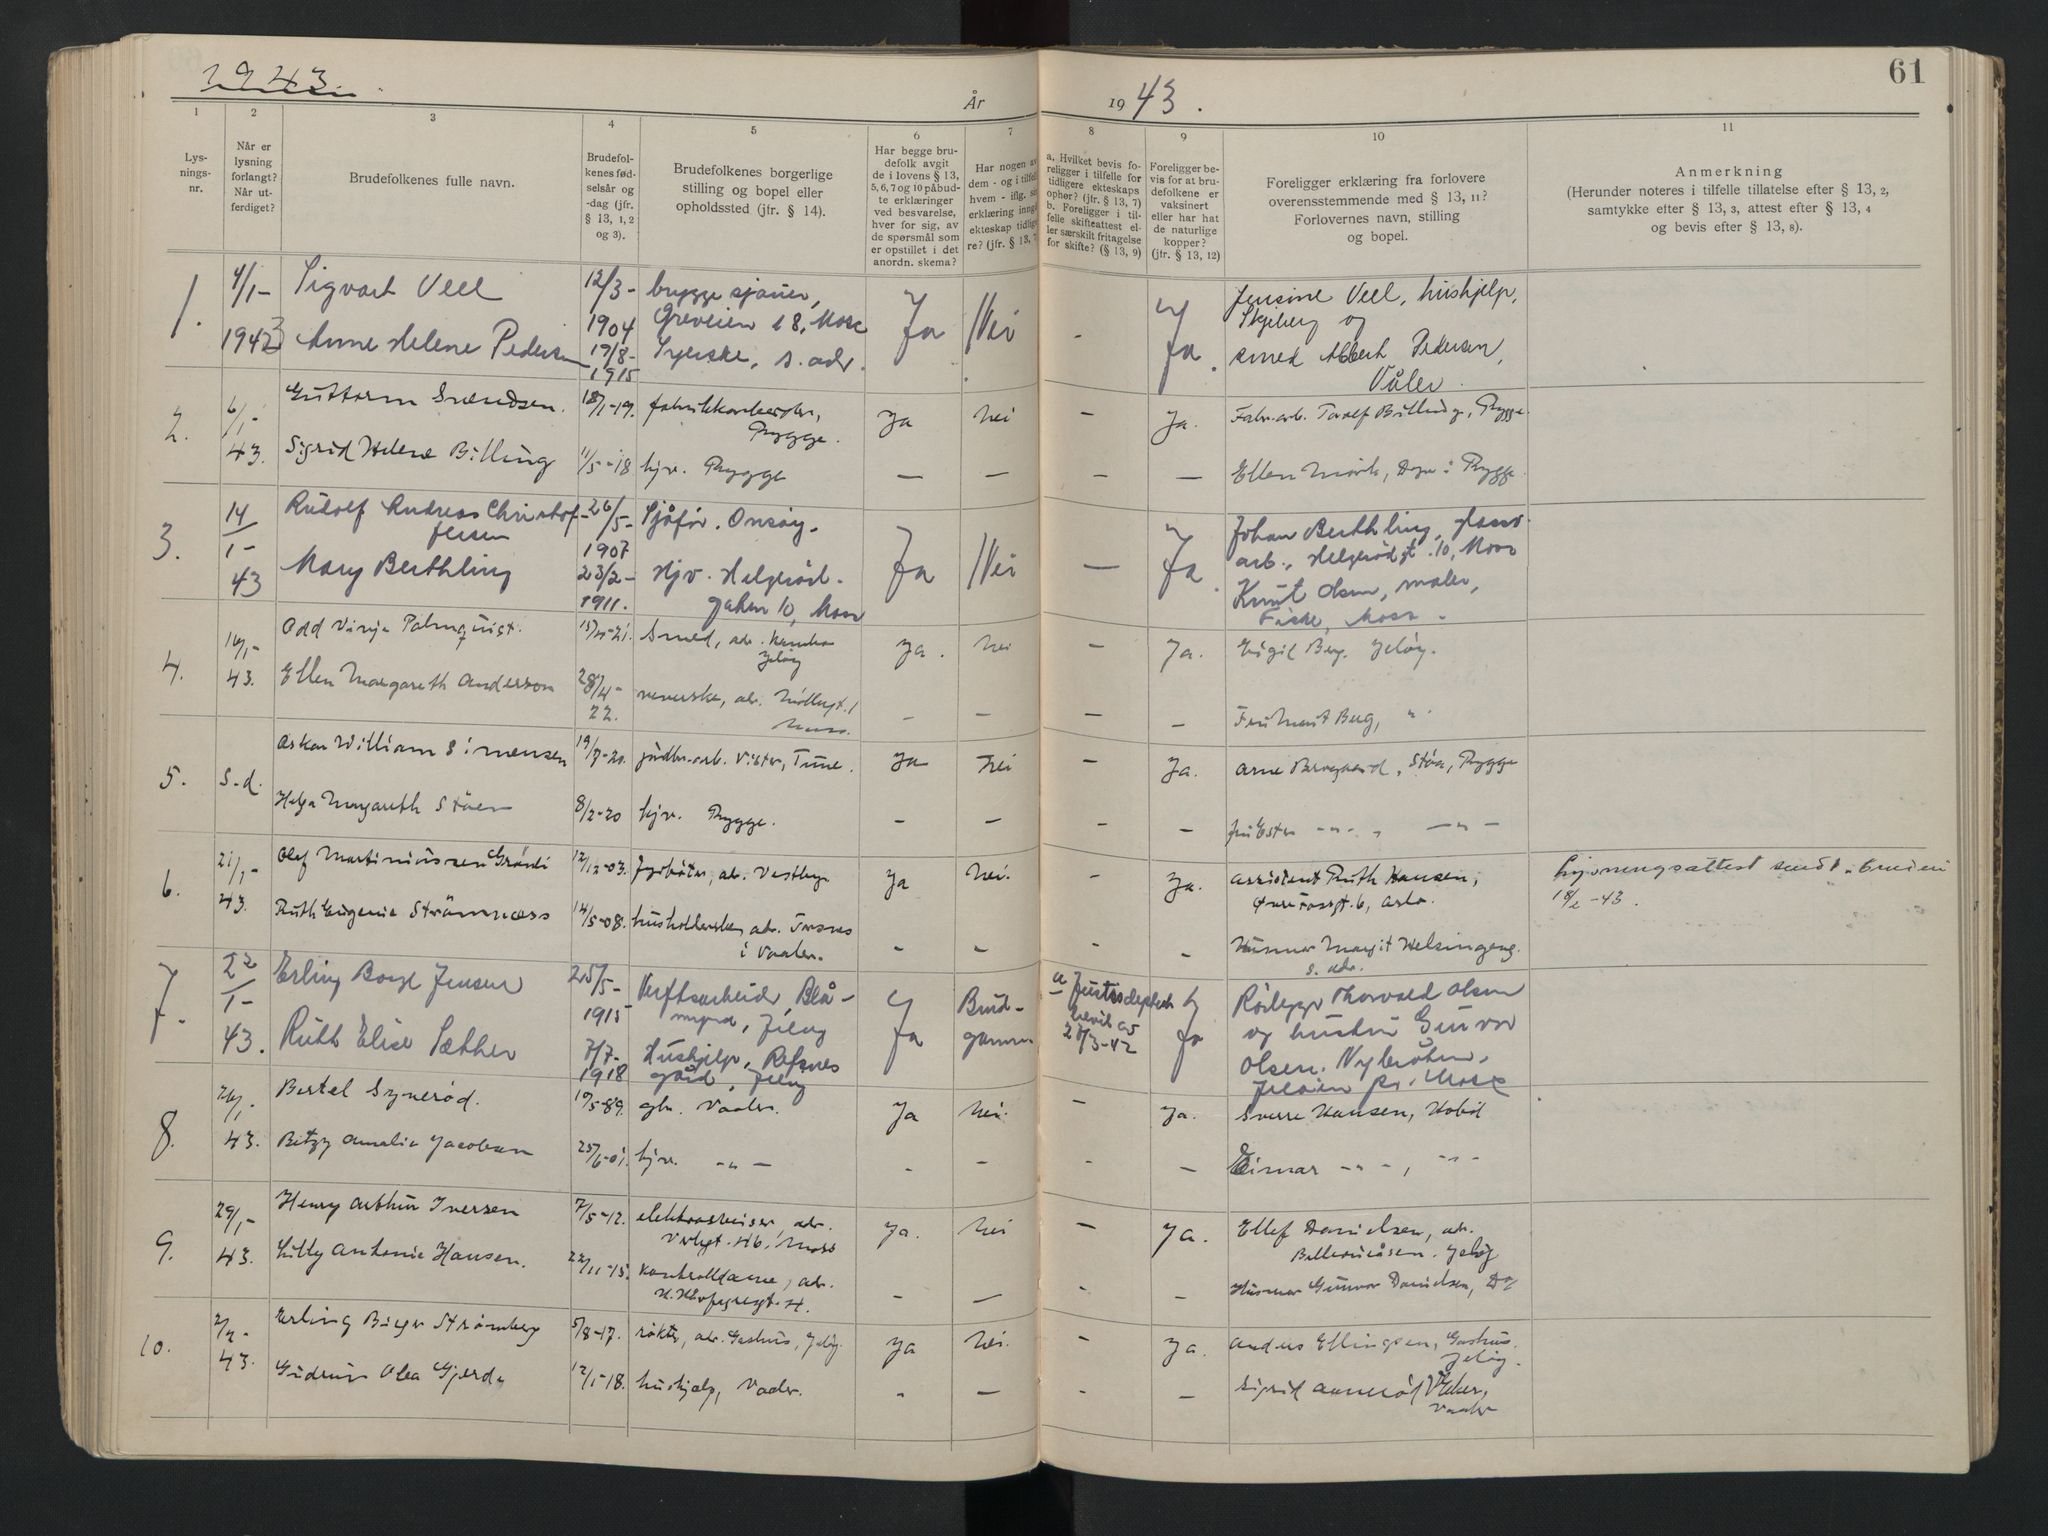 1943.
År
1943.
61
1
2
3
4
5
6
7
8
9
10
11
Lys-
nings-
nr.
Når er
lysning
forlangt?
Når ut-
ferdiget?
Brudefolkenes fulle navn.
Brudefol-
kenes fød-
selsår og
-dag (jfr.
§ 13, 1, 2
og 3).
Brudefolkenes borgerlige
stilling og bopel eller
opholdssted (jfr. § 14).
Har begge bru-
defolk avgit
de i lovens § 13,
5, 6, 7 og 10 påbud-
te erklæringer
ved besvarelse,
hver for sig, av
de spørsmål som
er opstillet i det
anordn. skema?
Har nogen av
dem - og i tilfel
hvem - iflg. si
erklæring inngå
ekteskap tidlige
re? (jfr. § 13, 7
a. Hvilket bevis fo-
religger i tilfelle for
tidligere ekteskaps
ophør? (jfr. § 13, 7)
b. Foreligger i til-
felle skifteattest el-
ler særskilt fritagelse
for skifte? (§ 13, 9)
Foreligger be-
vis for at bru-
defolkene er
vaksinert
eller har hat
de naturlige
kopper?
(jfr. § 13, 12)
Foreligger erklæring fra forlovere
overensstemmende med § 13, 11?
Forlovernes navn, stilling
og bopel.
Anmerkning
(Herunder noteres i tilfelle tillatelse efter § 13, 2,
samtykke efter § 13, 3, attest efter § 13, 4
og bevis efter § 13, 8).
1.
4/1-
1943
Sigvart Veel
Anne Helene Pedersen
12/3-
1904
19/8-
1915
bryggesjauer,
Greveien 18, Moss
Syerske, s. adr.
Ja
Nei
-
Ja.
Jensine Veel, hushjelp,
Skjeberg og
smed Albert Pedersen,
Våler.
2.
6/1-
43.
Guttorm Svendsen.
Sigrid Helene Billing
18/1-19.
11/5-18
fabrikkarbeider,
Rygge.
hjv. Rygge
Ja
nei
-
Ja.
Fabr.arb. Torolf Billing, Rygge
Ellen Mørk, Do i Rygge.
3.
14/1-
43
Rudolf Andreas Christof-
fersen
Mary Berthling
26/5-
1907
23/2-
1911.
Sjåfør. Onsøy.
Hjv. Helgerød-
gaten 10, Moss
Ja
Nei
—
Ja.
Johan Berthling, glass-
arb., Helgerødgt. 10, Moss
Knut Olsen, maler,
Fiske, Moss.
4.
16/1-
43.
Odd Vinje Palmquist.
Ellen Margareth Anderson
28/4-
22.
Smed, adr. Kambo
Jeløy
veverske, adr. Møllegt. 1
Moss.
Ja.
nei
-
Ja.
Eigil Berg. Jeløy.
Fru Marit Berg, "
5.
S.d.
Oskar William Simensen
Helga Margareth Støen
19/7-20.
8/2-20
jordbr.arb. Vister, Tune.
hjv. Rygge.
Ja
nei
-
Ja.
Arne Brevgaard, Støa, Rygge
fru Ester -"- , -"-
6.
21/1-
43.
Olef Martiniussen Grønli
Ruth Eugenie Strømnæss
12/12-03.
14/5-08.
fyrbøter, adr. Vestby
husholderske, adr. Tosnes
i Vaaler.
Ja
nei.
-
Ja.
Assistent Ruth Hansen,
Tossgt. 6, Oslo.
Husmor Margit Helsingeng.
s. adr.
Lysningsattest sendt bruden
18/2-43.
7.
22/1-
43.
Erling Borge Jensen
Ruth Elise Sæther
25/5-
1915
7/7-
1918
Verftsarbeider, Blå-
myra, Jeløy
Hushjelp, Refsnes
gård, Jeløy
Ja
Brud-
gommen
a Justisdeptets
bevilg
28/3-42
Ja
Rørlegger Thorvald Olsen
og hustru Gunvor
Olsen, Nybråten,
Jeløien pr. Moss
8.
26/1-
43.
Bertel Synerød.
Betzy Amalie Jacobsen
19/5-89.
25/6-01.
gbr. Vaaler.
hjv. -"-
Ja
nei.
-
Ja.
Sverre Hansen, Hobøl
Einar -"-, -"-
9.
29/1-
43.
Henry Arthur Iversen
Lilly Antonie Hansen.
7/5-12.
22/11-15.
elektrosveiser, adr.
Verlegt. 46, Moss
kontrolldame, adr.
Ja.
nei
-
Ja.
Ellef Danielsen, adr.
Bellevueåsen. Jeløy
Husmor Gunvor Danielsen, Do
10.
2/2-
43.
Erling Birger Strømberg
Gudrun Olea Gjerde
5/8-17.
12/1-18.
røkter, adr. Gashus, Jeløy.
hushjelp, Vaaler.
Ja
nei.
-
Ja.
Anders Ellingsen, Gashus.
Jeløy.
Sigrid Aannerød,
Vaaler